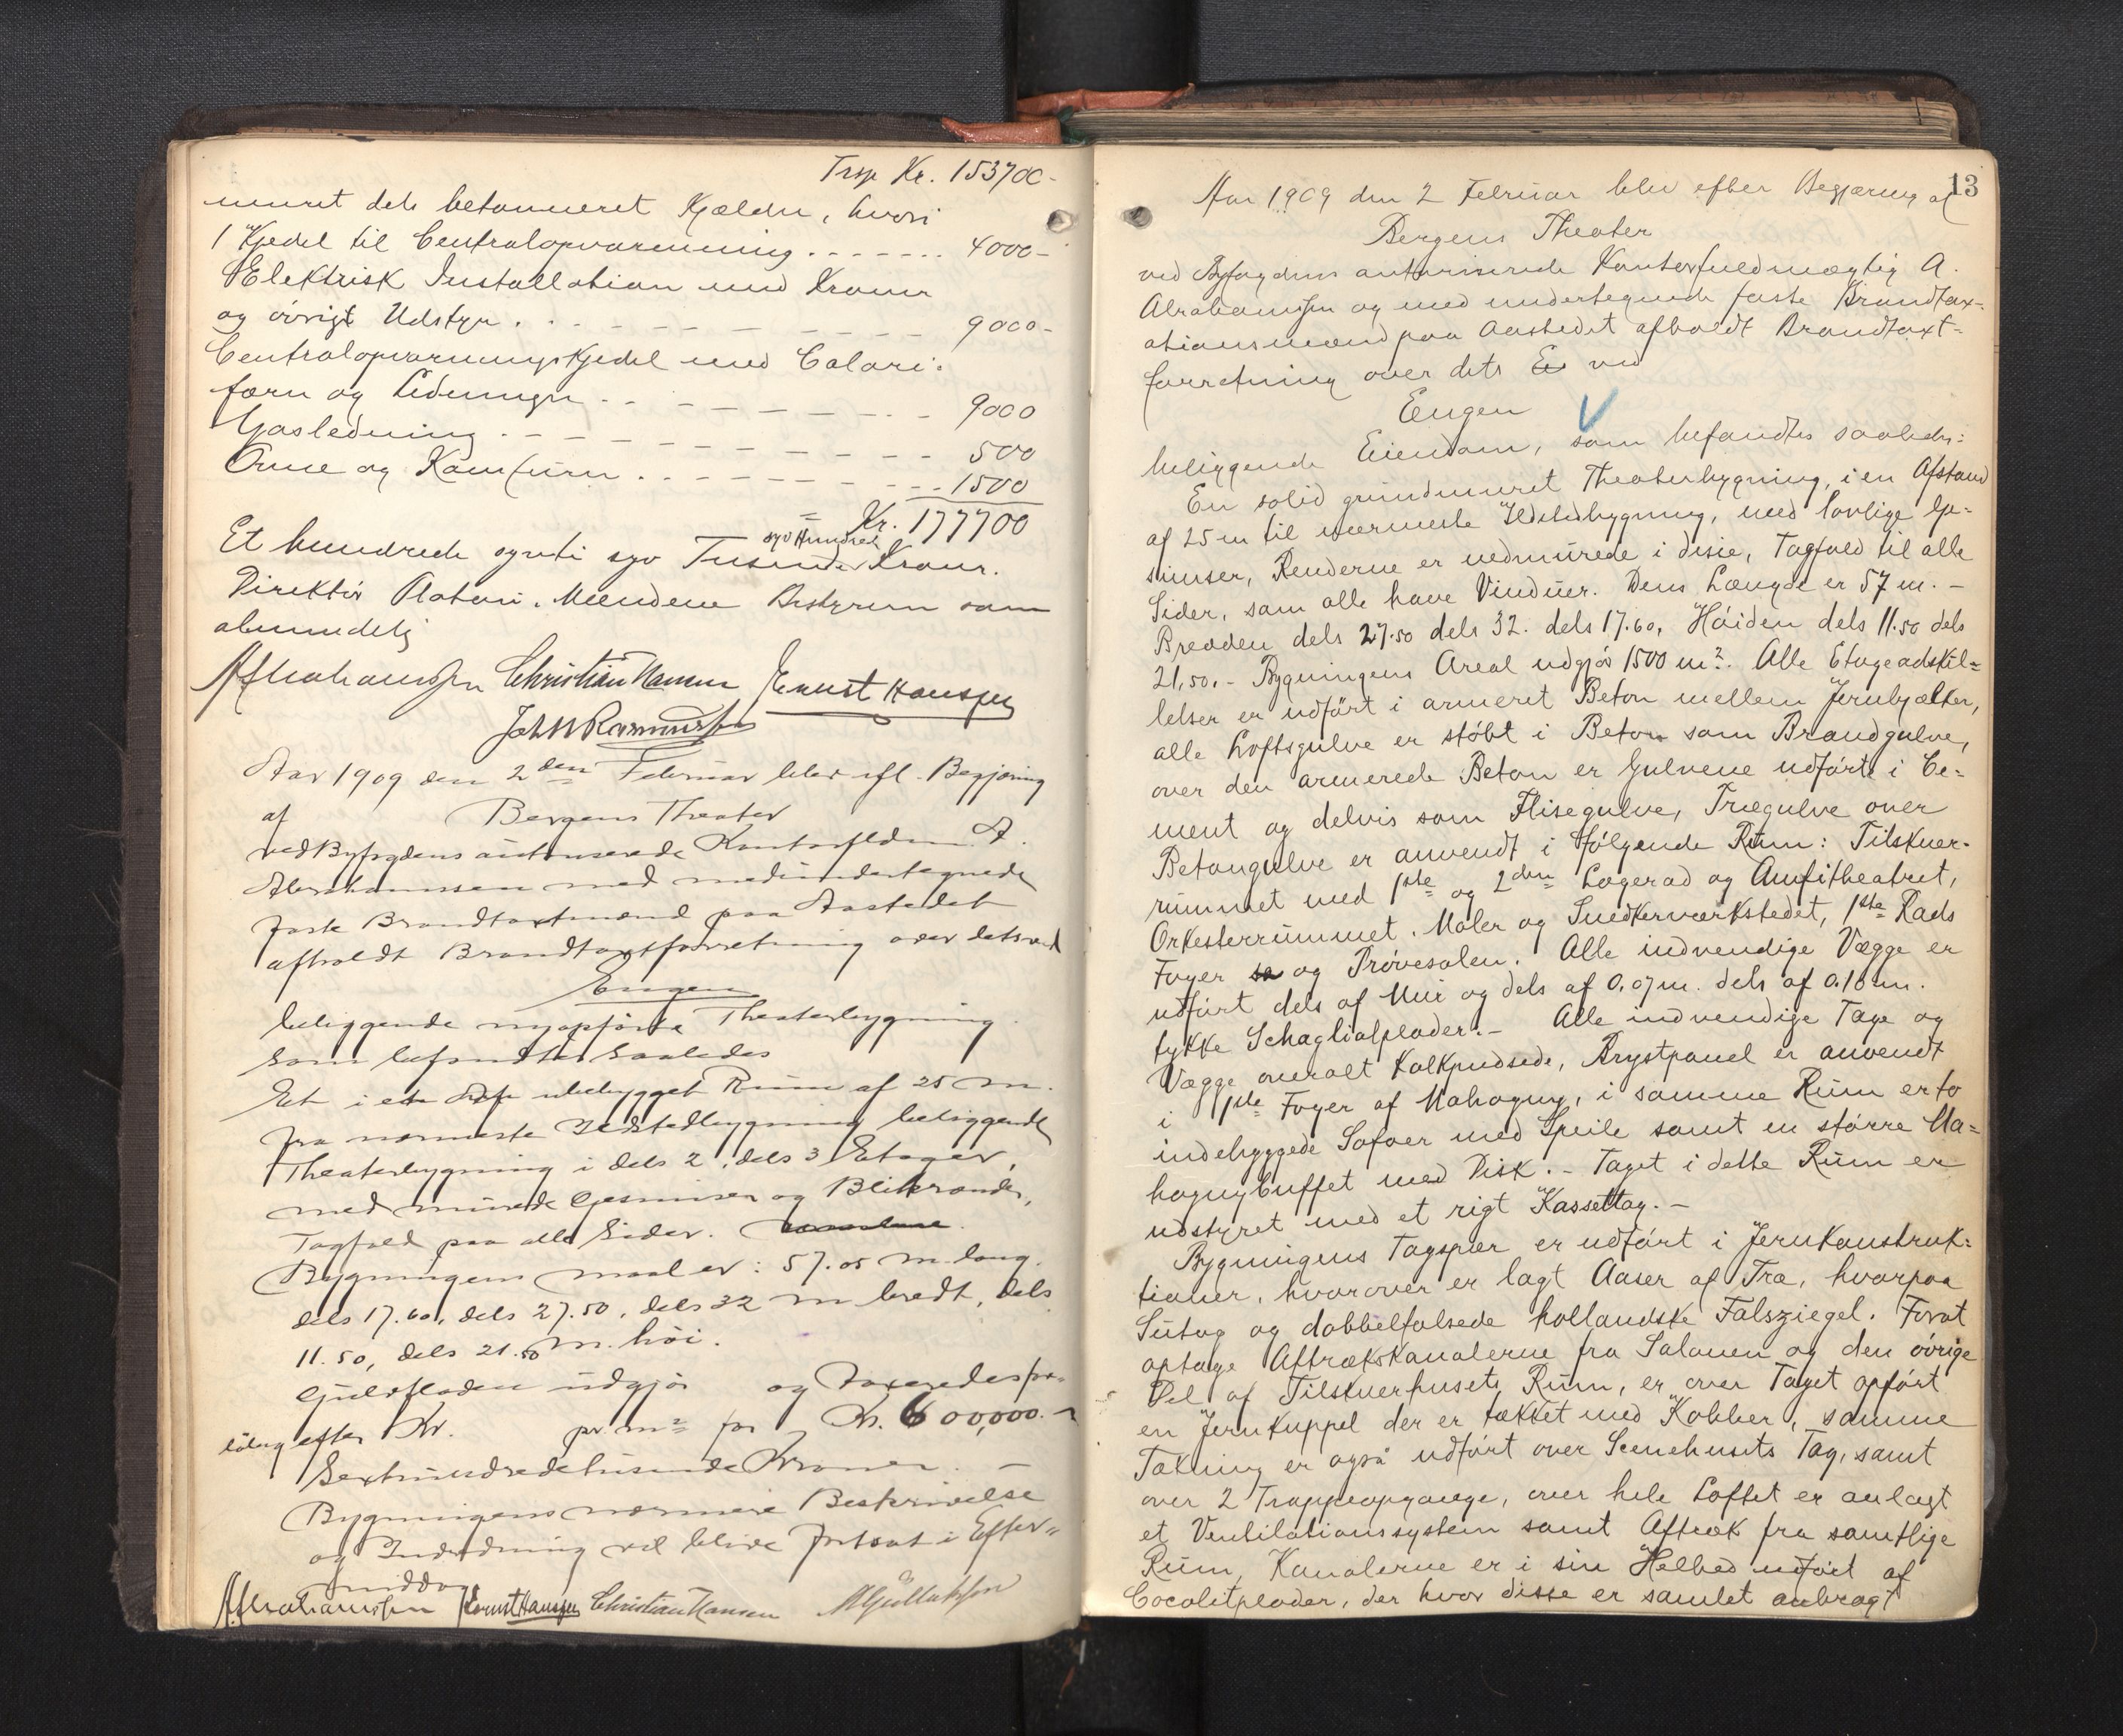 Trsp Kr. 153700-
muret dels betonneret Kjælder, hvori
1 Kjedel til Centralopvarmning . . . . . . . 4000-
Elektrisk Installation med Kroner
og övrigt Udstyr . . . 9000-
Centralopvarmningskjedel med Calori-
færn og Ledninger . . . 9000
Gasledning . . . 500
Ovne og Komfurer . . . 1500
Kr. 177700
syv Hundrede
Et hundrede sytti syv Tusinde Kroner.
Direktör Mændene Bestyrer som
almindelig
AAbrahamssen Christian Hansen Ernst Hanssen
John Rasmussen
Aar 1909 den 2den Februar blev eft. Begjæring
af Bergens Theater
ved Byfogdens autoriserede Kontorfldm. A.
Abrahamssen med medundertegnede
faste Brandtaxtmænd paa Aastedet
afholdt Brandtaxtforretning over dets ved
Engen
beliggende nyopförte Theaterbygning
som befandtes saaledes
Et i et ubebygget Rum af 25 m.
fra nærmeste Ildstedbygning beliggende
Theaterbygning i dels 2, dels 3 Etager,
med murede Gesimser og Blikrender,
Tagfald paa alle Sider.
Bygningens maal er: 57.05 m lang.
dels 17.60, dels 27.50, dels 32 m bredt, dels
11.50, dels 21.50 m. höi.
Gulvfladen udgjör og taxeredes fore-
löbig efter Kr. pr. m2 for Kr. 600,000.-
Sexhundredetusinde Kroner. -
Bygningens nærmere Beskrivelse
og Indredning vil blive fortsat i Efter-
middag
AAbrahamssen Ernst Hanssen Christian Hansen
13
Aar 1909 den 2 Februar blev efter Begjæring af
Bergens Theater
ved Byfogdens autoriserede Kontorfuldmægtig A.
Abrahamssen og med undertegnede faste Brandtax-
ationsmænd paa Aastedet afholdt Brandtaxt-
forretning over dets En ved
Engen
beliggende Eiendom, som befandtes saaledes:
En solid grundmuret Theaterbygning, i en Afstand
af 25 m til nærmeste Ildstedbygning, med lovlige Ge-
simser, Renderne er nedmurede i disse, Tagfald til alle
Sider, som alle have Vinduer. Dens Længde er 57 m. -
Bredden dels 27.50 dels 32. dels 17.60, Höiden dels 11.50 dels
21,50. - Bygningens Areal udgjör 1500 m2. Alle Etageadskil-
lelser er udfört i armeret Beton mellem Jernbjælker,
alle Loftsgulve er stöbt i Beton som Brandgulve,
over den armerede Beton er Gulvene udförte i Ce-
ment og delvis som Flisegulve, Trægulve over
Betongulve er anvendt i fölgende Rum: Tilskuer-
rummet med 1ste og 2den Logerad og Amfitheatret,
Orkesterrummet. Maler og Snedkerværkstedet, 1ste Rads
Foyer sa og Prövesalen. Alle indvendige Vægge er
udfört dels af Mur og dels af 0.07 m. dels af 0.10 m.
tykke Schagliolplader. - Alle indvendige Tage og
Vægge overalt kalkpudsede, Brystpanel er anvendt
i 1ste Foyer af Mahogny, i samme Rum er to
indebyggede Sofaer med Speile samt en större Ma-
hognybuffet med Disk. - Taget i dette Rum er
udstyret med et rigt Kassettag. -
Bygningens Tagspær er udfört i Jernkonstruk-
tioner, hvorover er lagt Aaser af Træ, hvorpaa
Sutag og dobbelfalsede hollandske Falsziegel. Forat
optage Aftrækskanalerne fra Salonen og den övrige
Del af Tilskuerhusets Rum, er over Taget opfört
en Jernkuppel der er tækket med Kobber, samme
Tækning er også udfört over Scenehusets Tag, samt
over 2 Trappeopgange, over hele Loftet er anlagt
et Ventilationssystem samt Aftræk fra samtlige
Rum, Kanalerne er i sin Helhed udfört af
Cocolitplader, der hvor disse er samlet anbragt